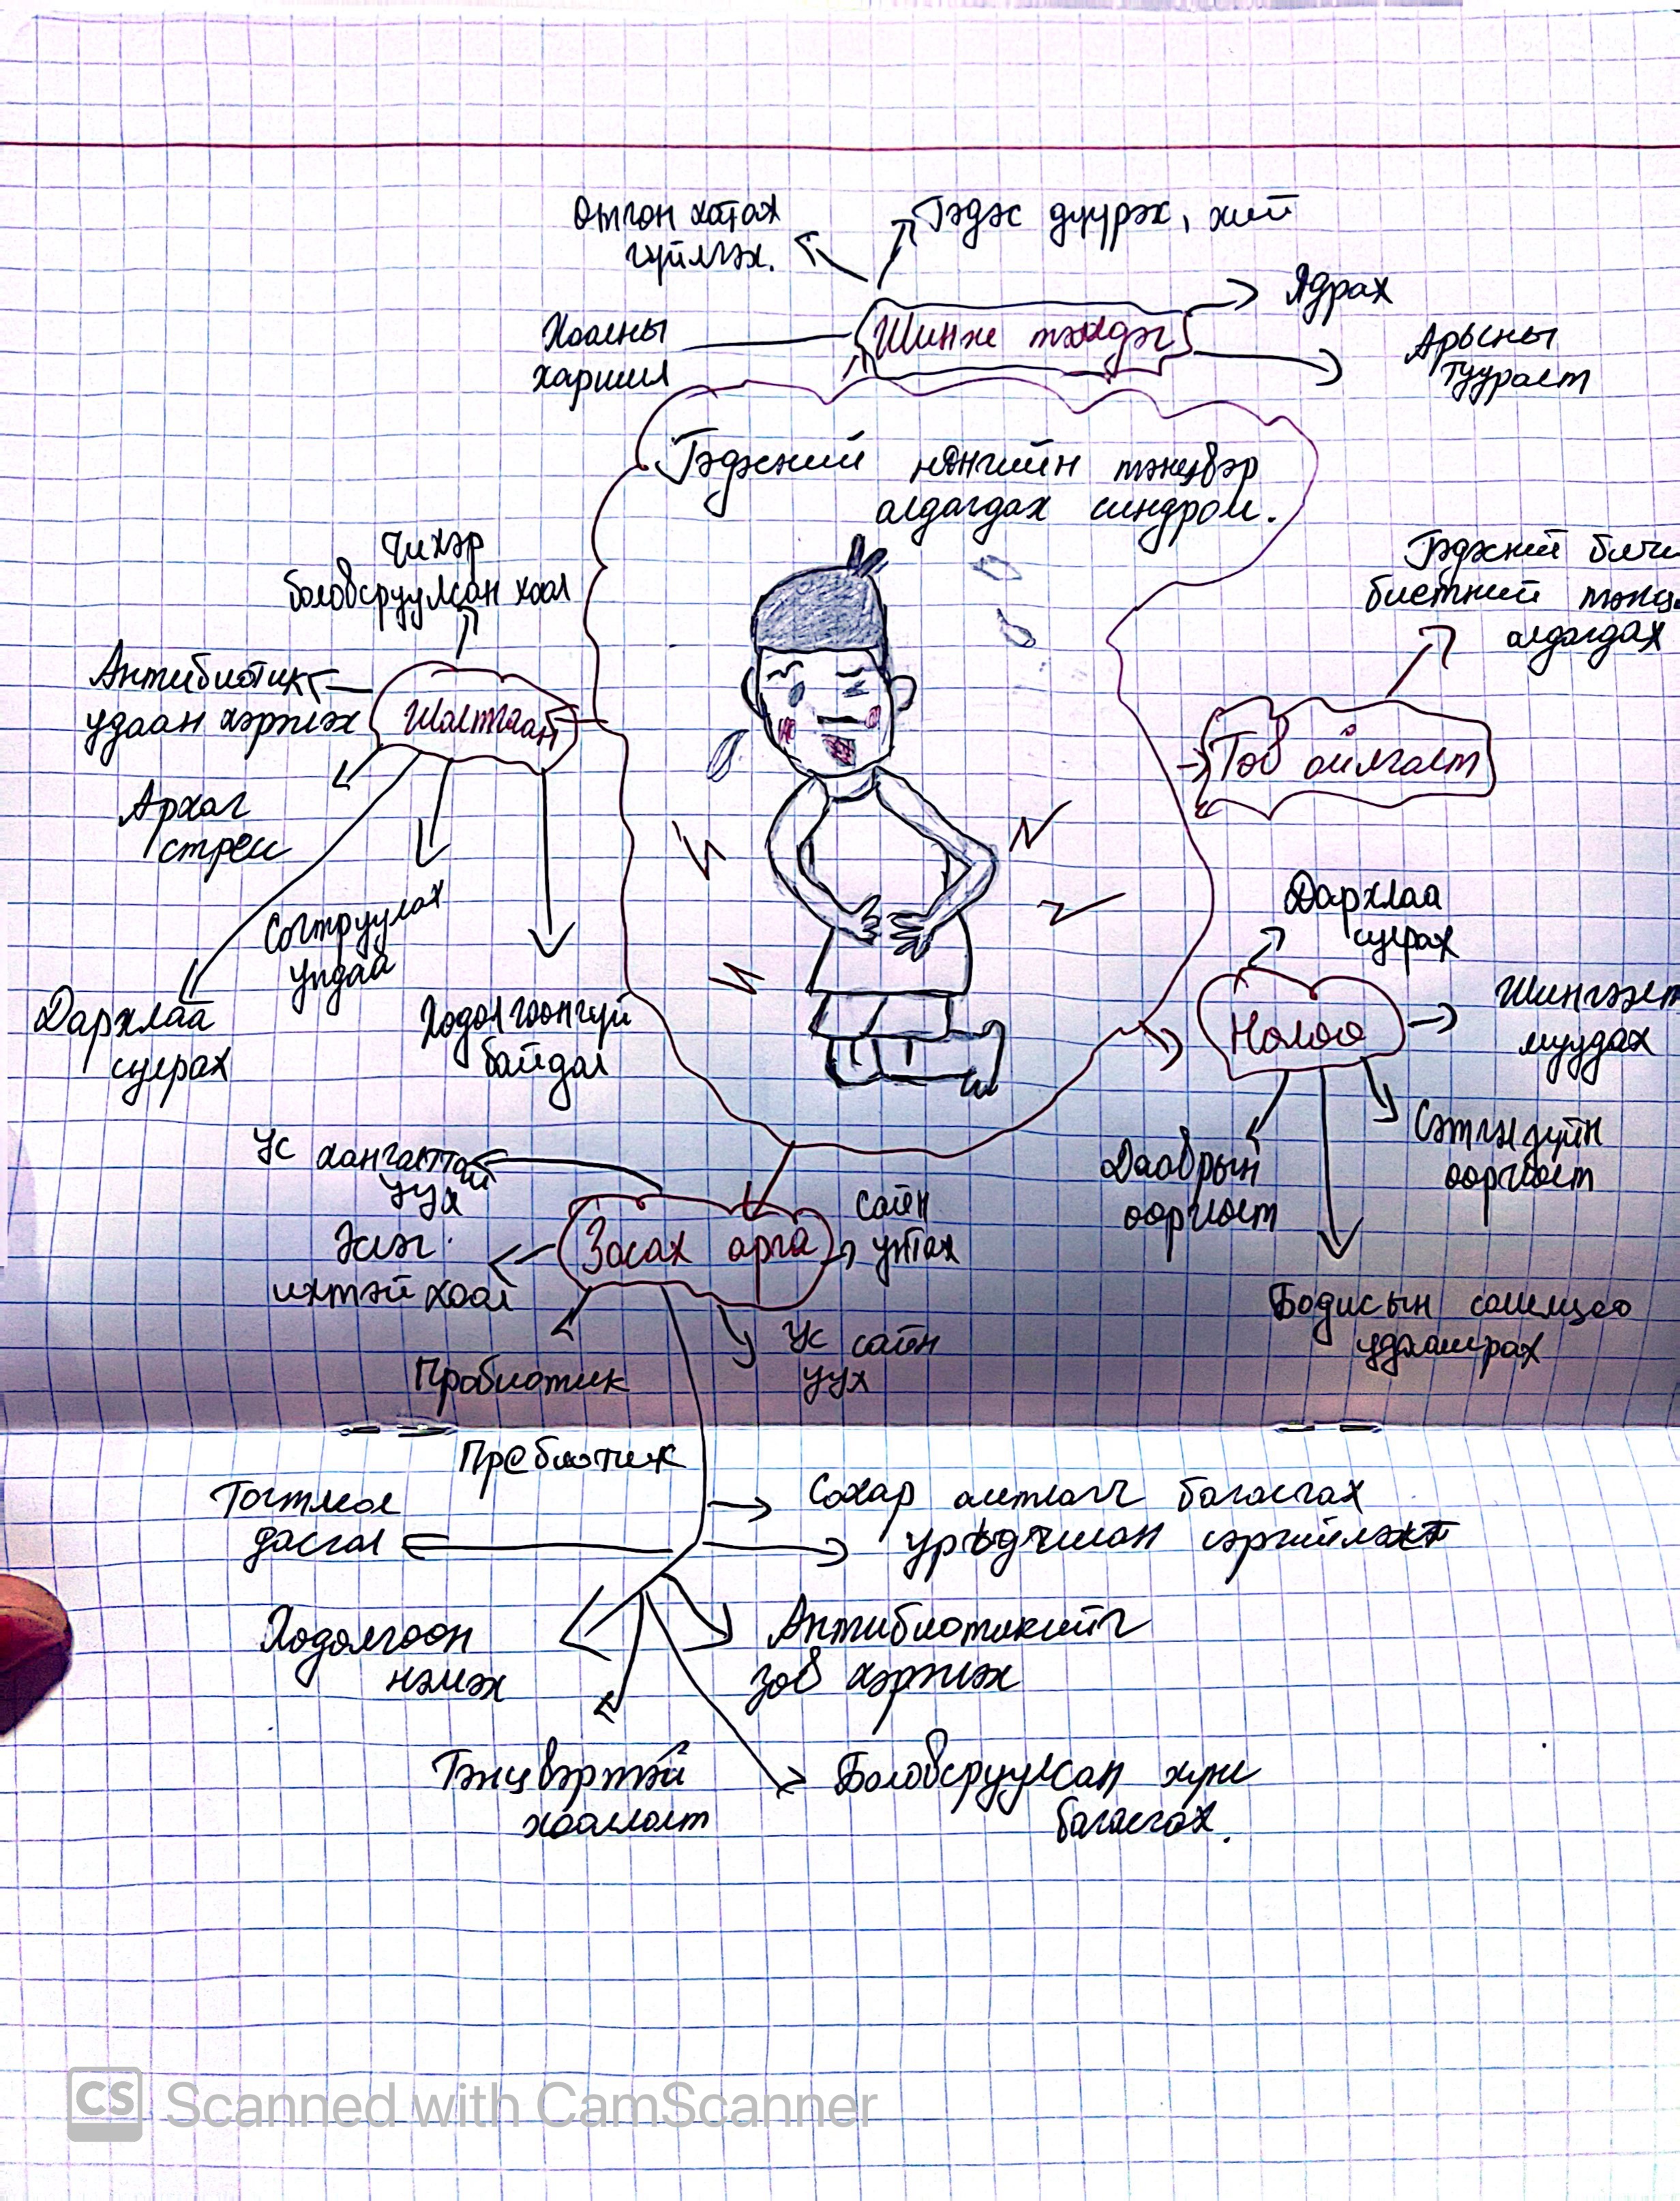 Өтгөн хатах
гүйлгэх.
Гэдэс дүүрэх, хий
Ядрах
Хоолны
харшил
Шинж тэмдэг
Арьсны
тууралт
Гэдэсний нянгийн тэнцвэр
алдагдах синдром.
Чихэр
боловсруулсан хоол
Антибиотик
удаан хэрэглэх
Шалтгаан
Архаг
стресс
Согтруулах
ундаа
Дархлаа
сулрах
Хөдөлгөөнгүй
байдал
Гэдэсний бичи
биетний тэнц
алдагдах
Төв ойлголт
Дархлаа
сулрах
Нөлөө
Шингээлт
муудах
Сэтгэл зүйн
өөрчлөлт
Дааврын
өөрчлөлт
Бодисын солилцоо
удаашрах
Ус хангалттай
уух
Эслэг
ихтэй хоол
Засах арга
сайн
унтах
Пробиотик
Ус сайн
уух
Пребиотик
Тогтмол
дасгал
Сахар агуулагч багасгах
урьдчилан сэргийлэлт
Хөдөлгөөн
нэмэх
Антибиотикийг
зөв хэрэглэх
Тэнцвэртэй
хооллолт
Боловсруулсан хүнс
багасгах.
CS Scanned with CamScanner